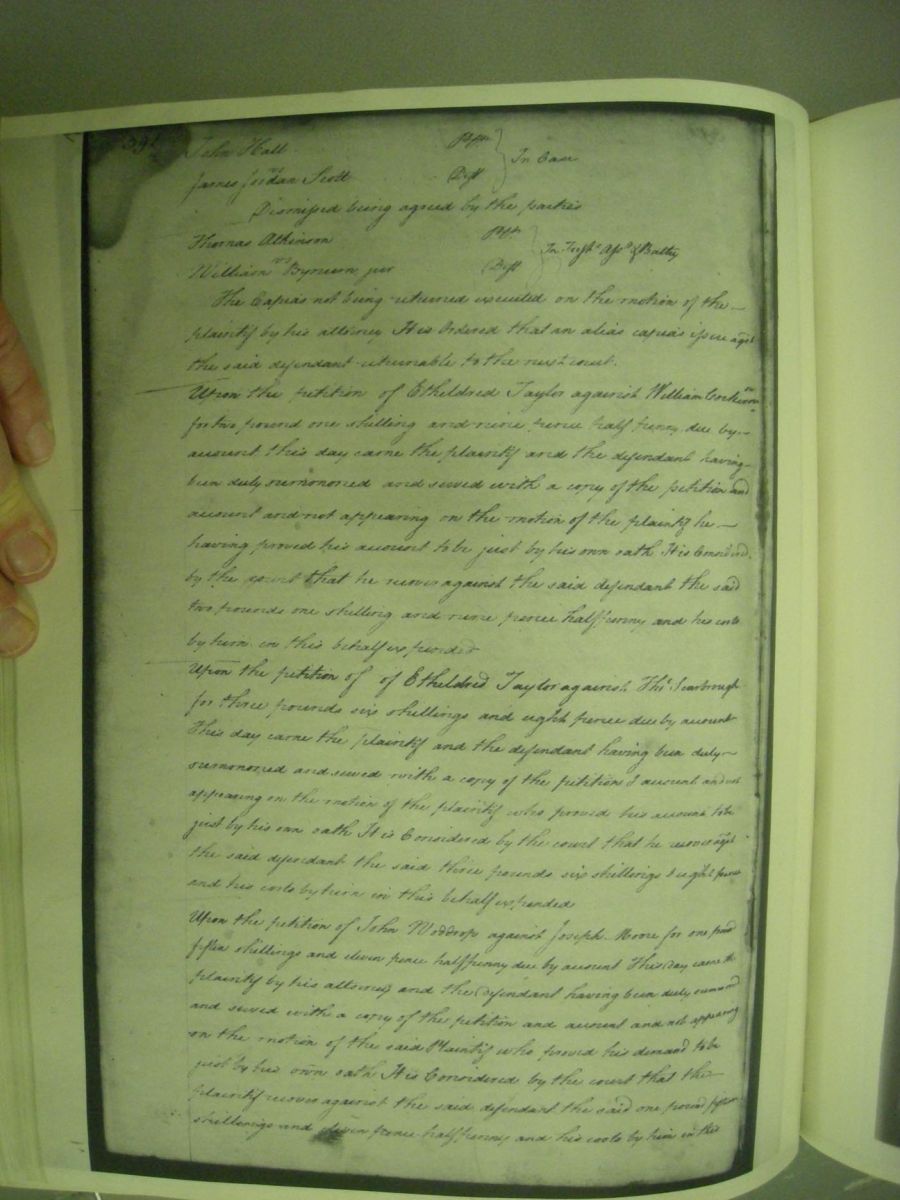 391
John Hall Pltf
vs In Case
James Jordan Scott Deft
Dismissed being agreed by the parties
Thomas Atkinson Pltf
vs In Tresps Asst & Battry
William Bynum junr Deft
The Capias not being returned executed on the motion of the
plaintif by his attorney It is Ordered that an alias capias issue agst
the said defendant returnable to the next court.
Upon the petition of Etheldred Taylor against William
for two pound one shilling and nine pence half penny due by
account this day came the plaintif and the defendant having
been duly summoned and served with a copy of the petition and
account and not appearing on the motion of the plaintif he
having proved his account to be just by his own oath It is Considerd
by the court that he recover against the said defendant the said
two pounds one shilling and nine pence halfpenny and his costs
by him in this behalf expended
Upon the petition of of Etheldred Taylor against Thos Scarbrough
for three pounds six shillings and eight pence due by account
This day came the plaintif and the defendant having been duly
summoned and served with a copy of the petition & account and not
appearing on the motion of the plaintif who proved his account to be
just by his own oath It is Considered by the court that he recover agst
the said defendant the said three pounds six shillings & eight pence
and his costs by him in this behalf expended
Upon the petition of John Woddrop against Joseph Moore for one pound
fifteen shillings and eleven pence halfpenny due by account This day came the
plaintif by his attorney and the defendant having been duly summond
and served with a copy of the petition and account and not appearing
on the motion of the said Plaintif who proved his demand to be
just by his own oath It is Considered by the court that the
plaintif recover against the said defendant the said one pound fifteen
shillings and eleven pence halfpenny and his costs by him in this